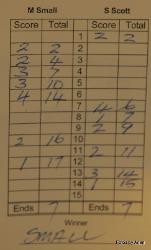 M Small S Scott
Score Total Score Total
1 2 2
2 2 2
2 4 3
3 7 4
3 10 5
4 14 6
7 4 6
8 1 7
9 2 9
2 16 10
11 2 11
1 17 12
13 3 14
14 1 15
15
Ends 7 Ends 7
Winner
SMALL